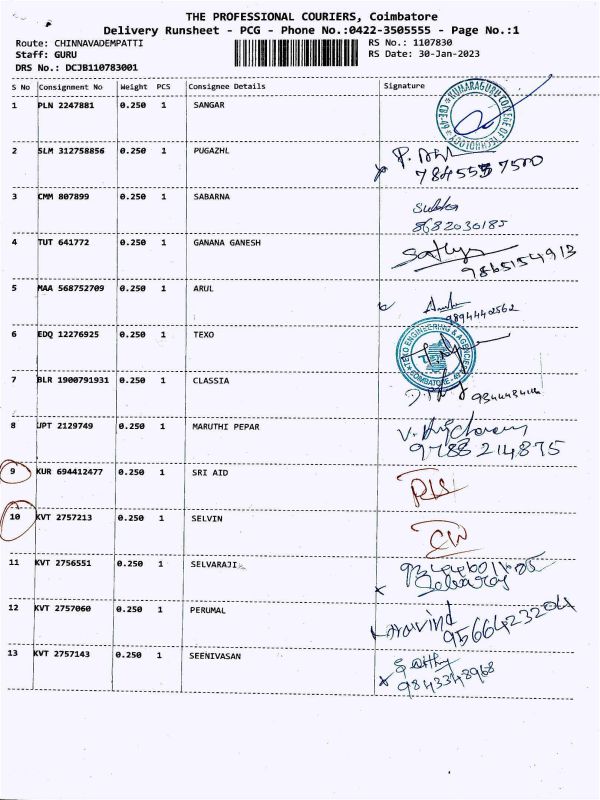 THE PROFESSIONAL COURIERS, Coimbatore
Delivery Runsheet - PCG - Phone No.:0422-3505555 - Page No.:1
Route: CHINNAVADEMPATTI RS No.: 1107830
Staff: GURU RS Date: 30-Jan-2023
DRS No.: DCJB110783001
S No Consignment No Weight PCS Consignee Details Signature
1 PLN 2247881 0.250 1 SANGAR
KUMARAGURU COLLEGE OF TECHNOLOGY CBE-49
2 SLM 312758856 0.250 1 PUGAZHL
7845557500
3 CMM 807899 0.250 1 SABARNA
8682030185
4 TUT 641772 0.250 1 GANANA GANESH
Sathya
9865154913
5 MAA 568752709 0.250 1 ARUL
98944402562
6 EDQ 12276925 0.250 1 TEXO
TEXO ENGINEERING & AGENCIES COIMBATORE - 49
7 BLR 1900791931 0.250 1 CLASSIA
8 JPT 2129749 0.250 1 MARUTHI PEPAR
9788214875
9 KUR 694412477 0.250 1 SRI AID
10 KVT 2757213 0.250 1 SELVIN
CW
11 KVT 2756551 0.250 1 SELVARAJI
12 KVT 2757060 0.250 1 PERUMAL
Aravind
9566423204
13 KVT 2757143 0.250 1 SEENIVASAN
9843348968